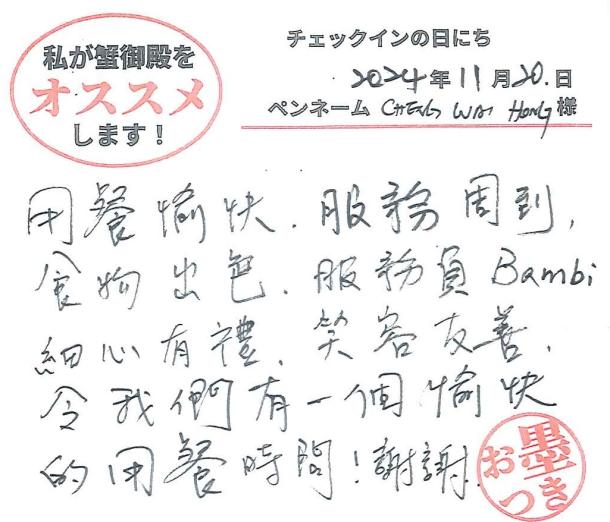 私が蟹御殿を
オススメ
します！
チェックインの日にち
2024年11月20日
ペンネーム CHENG WAI HONG 様
用餐愉快，服務周到，
食物出色，服務員Bambi
細心有禮，笑容友善，
令我們有一個愉快
的用餐時間！謝謝
お墨つき